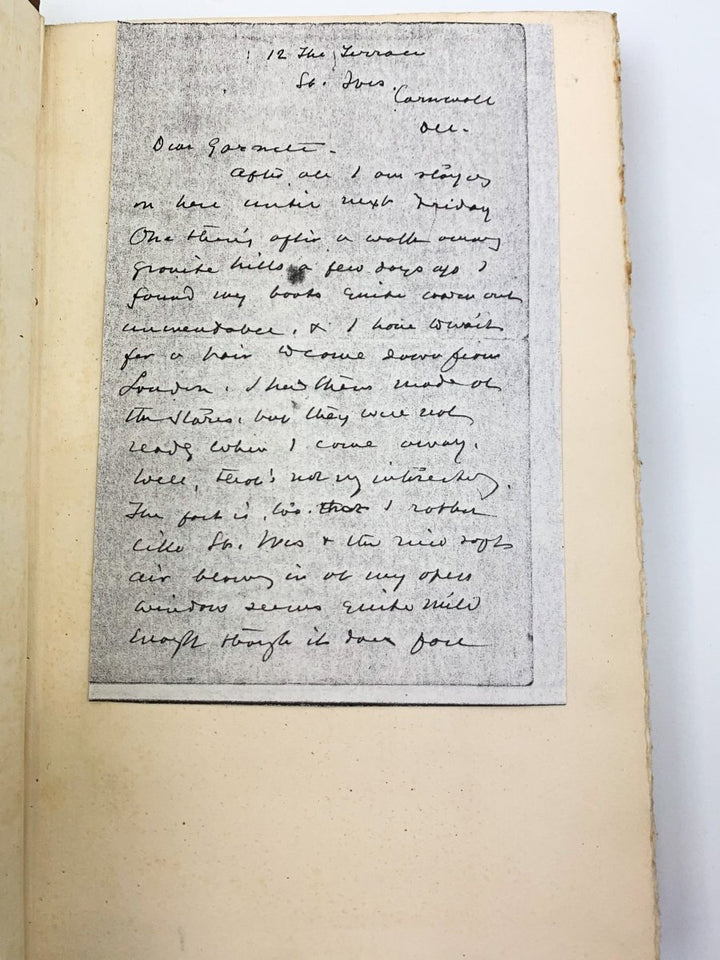 12 The Terrace
St. Ives.
Cornwall
Dear Garnett -
After all I am staying
on here until next Friday
One thing, after a walk among
granite hills a few days ago I
found my boots quite worn out
unmendable, & I have to wait
for a pair to come down from
London. I had them made at
the Stores, but they were not
ready when I came away.
Well, that's not very interesting.
The fact is, too, that I rather
like St. Ives & the nice soft
air blowing in at my open
window seems quite mild
enough though it does face